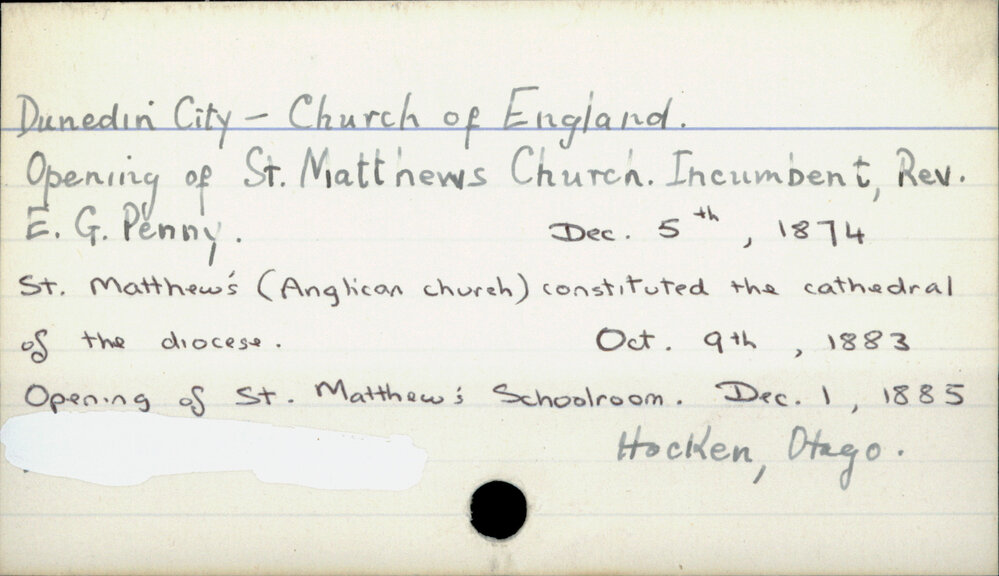 Dunedin City – Church of England.
Opening of St. Matthews Church. Incumbent, Rev.
E. G. Penny. Dec. 5th, 1874
St. Matthew's (Anglican church) constituted the cathedral
of the diocese. Oct. 9th, 1883
Opening of St. Matthew's Schoolroom. Dec. 1, 1885
Hocken, Otago.